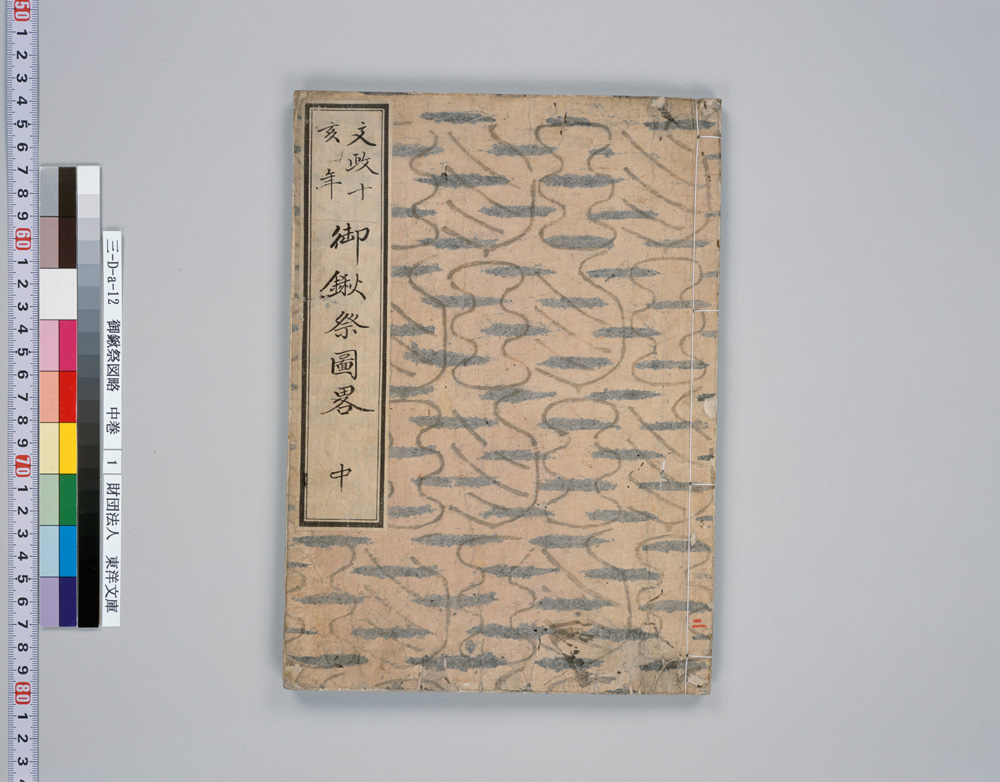 文政十
亥年
御鍬祭圖畧
中
三-D-a-12 御鍬祭図略 中巻 1 財団法人 東洋文庫
50
1
2
3
4
5
6
7
8
9
60
1
2
3
4
5
6
7
8
9
70
1
2
3
4
5
6
7
8
9
80
1
2
3